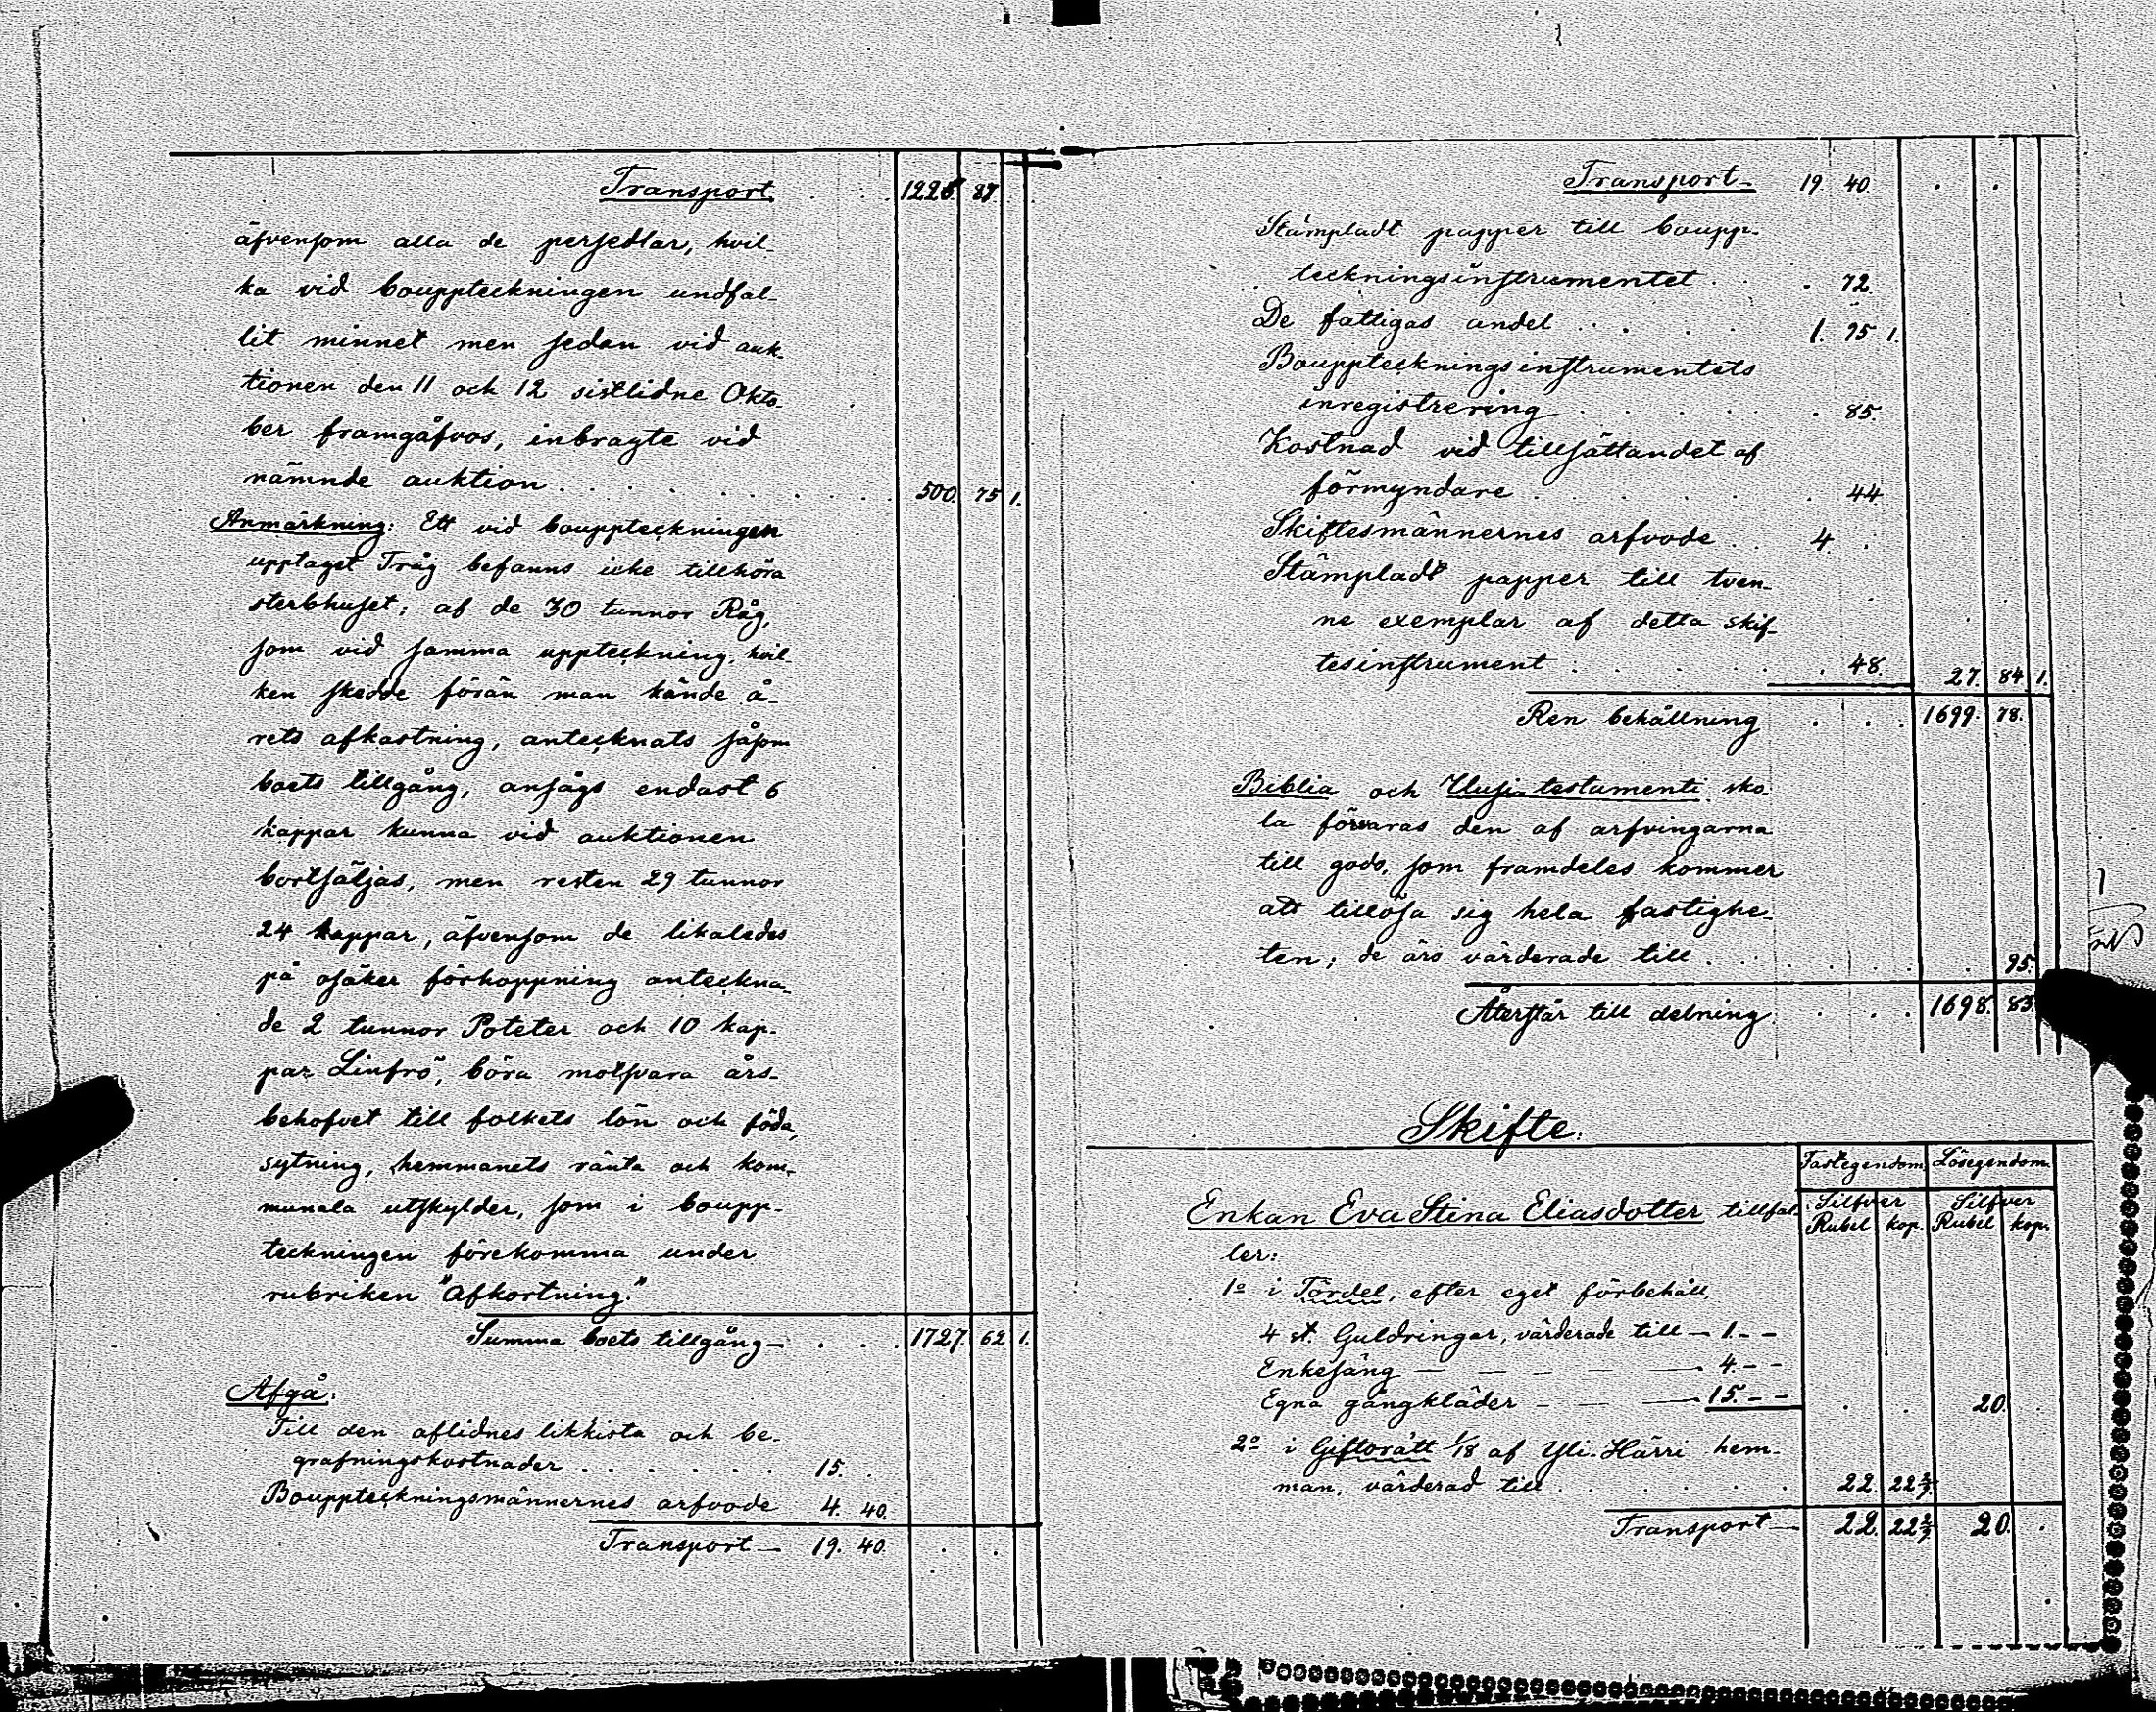 Transport . . . 1226. 87.
äfvensom alla de persedlar, hvil-
ka vid bouppteckningen undfal-
lit minnet men sedan vid auk-
tionen den 11 och 12 sistlidne Okto-
ber framgåfvos, inbragte vid
nämnde auktion . . . . . . . . . 500. 75 1.
Anmärkning: Ett vid bouppteckningen
upptaget Tråg befanns icke tillhöra
sterbhuset; af de 30 tunnor Råg,
som vid samma uppteckning, hvil-
ken skedde förän man kände å-
rets afkastning, antecknats såsom
boets tillgång, ansågs endast 6
kappar kunna vid auktionen
bortsäljas, men resten 29 tunnor
24 kappar, äfvensom de likaledes
på osäker förhoppning anteckna-
de 2 tunnor Poteter och 10 kap-
par Linfrö, böra motsvara års-
behofvet till folkets lön och föda,
sytning, hemmanets ränta och kom-
munala utskylder, som i boupp-
teckningen förekomma under
rubriken "Afkortning."
Summa boets tillgång — . . . 1727. 62 1.
Afgå:
Till den aflidnes likkista och be-
grafningskostnader . . . . . . . 15. .
Bouppteckningsmännernes arfvode 4. 40.
Transport — 19. 40. . .
Transport — 19. 40 . .
Stämpladt papper till boupp-
teckningsinstrumentet . . . 72.
De fattigas andel . . . . . 1. 95 1.
Bouppteckningsinstrumentets
inregistrering . . . . . . 85.
Kostnad vid tillsättandet af
förmyndare . . . . . 44
Skiftesmännernes arfvode . . 4 .
Stämpladt papper till tven-
ne exemplar af detta skif-
tesinstrument . . . . . 48. 27. 84 1.
Ren behållning . . . 1699. 78.
Biblia och Uusi testamenti sko-
la förvaras den af arfvingarna
till godo, som framdeles kommer
att tillösa sig hela fastighe-
ten; de äro värderade till . . . . . . . 95.
Återstår till delning . . . . 1698. 83.
Skifte.
Fastegendom Lösegendom.
Silfver Silfver
Rubel kop. Rubel kop.
Enkan Eva Stina Eliasdotter tillfal-
ler:
1o i Fördel, efter eget förbehåll,
4 st. Guldringar, värderade till — 1. – –
Enkesäng — — — — 4. – –
Egna gångkläder — — — 15. – – . . 20. .
2o i Giftorätt 1/18 af Yli-Härri hem-
man, värderad till . . . . . . 22. 22 2/9.
Transport — 22. 22 2/9 20. .